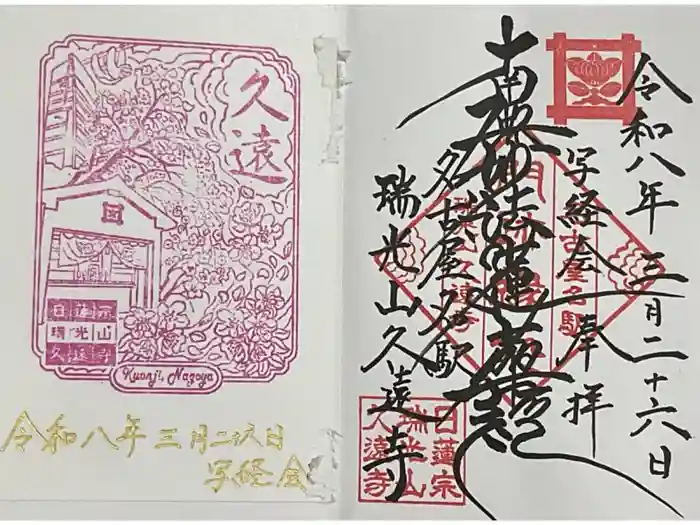 久遠
日蓮宗
瑞光山
久遠寺
Kuonji, Nagoya
令和八年三月二六日
写経会
令和八年三月二十六日
写経会奉拝
南無妙法蓮華経
名古屋名駅
瑞光山久遠寺
日蓮宗
瑞光山
久遠寺